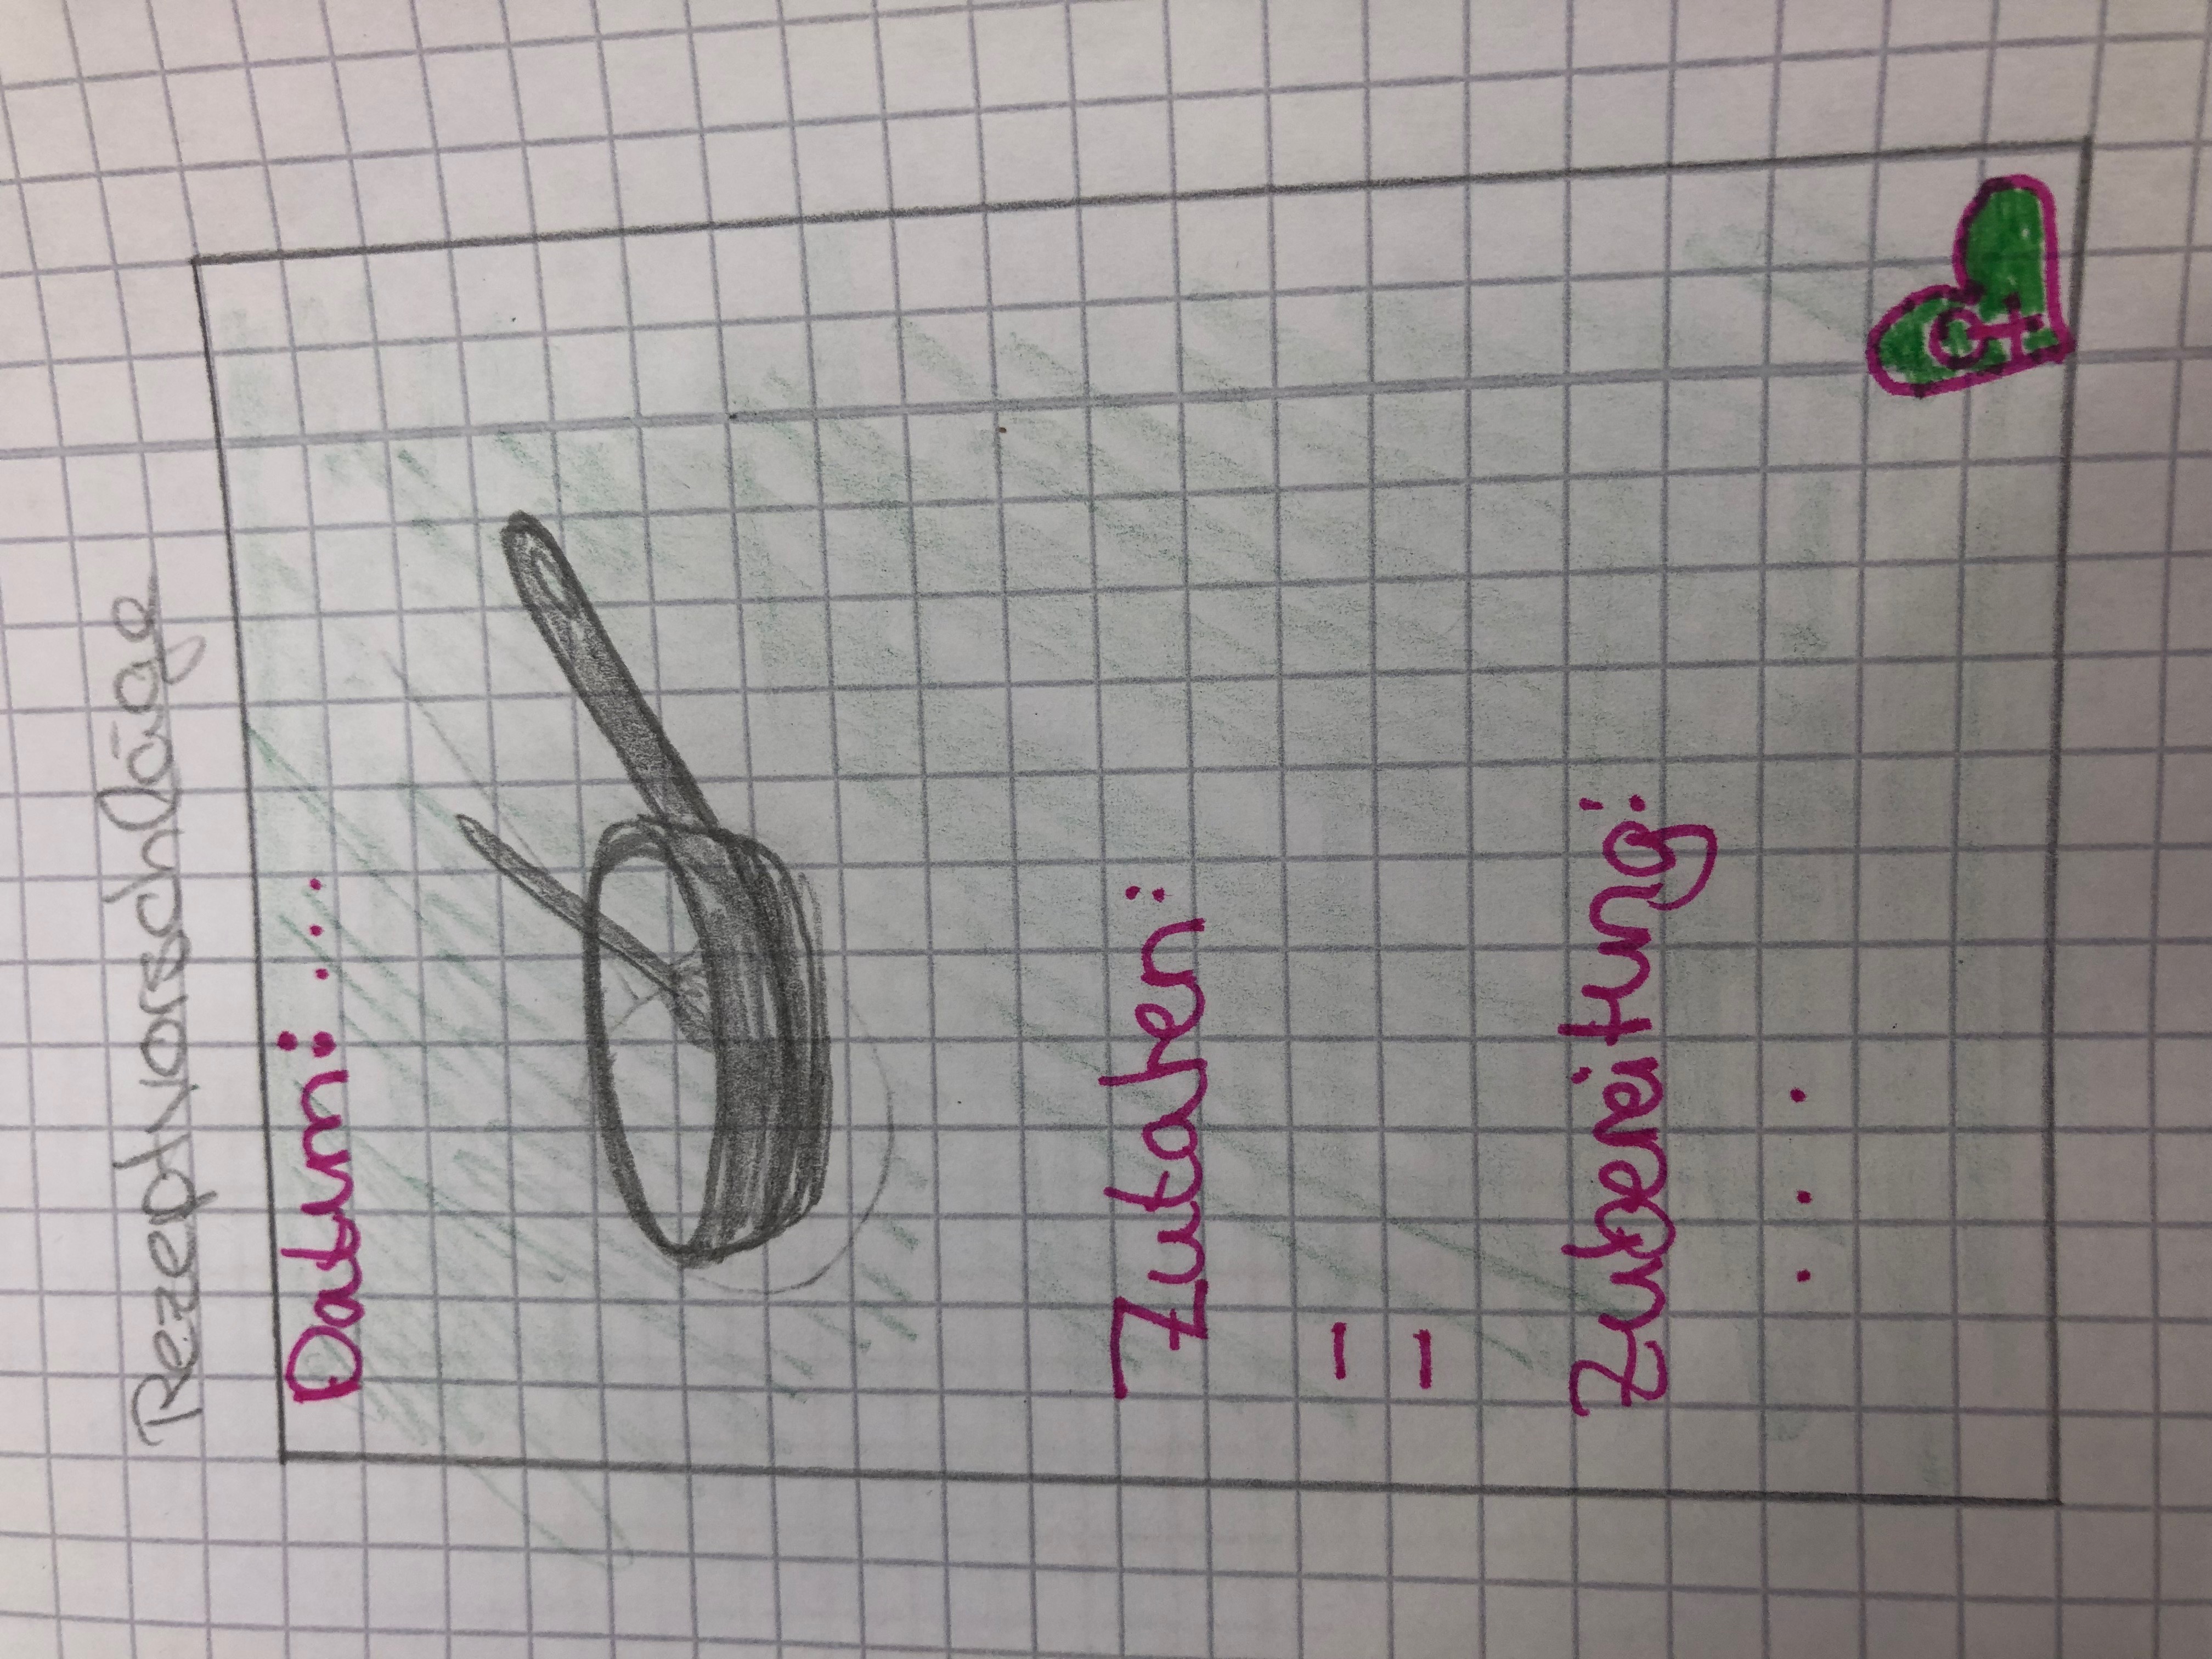 Rezeptvorschläge
Datum: ...
Zutaten:
-
-
Zubereitung:
...